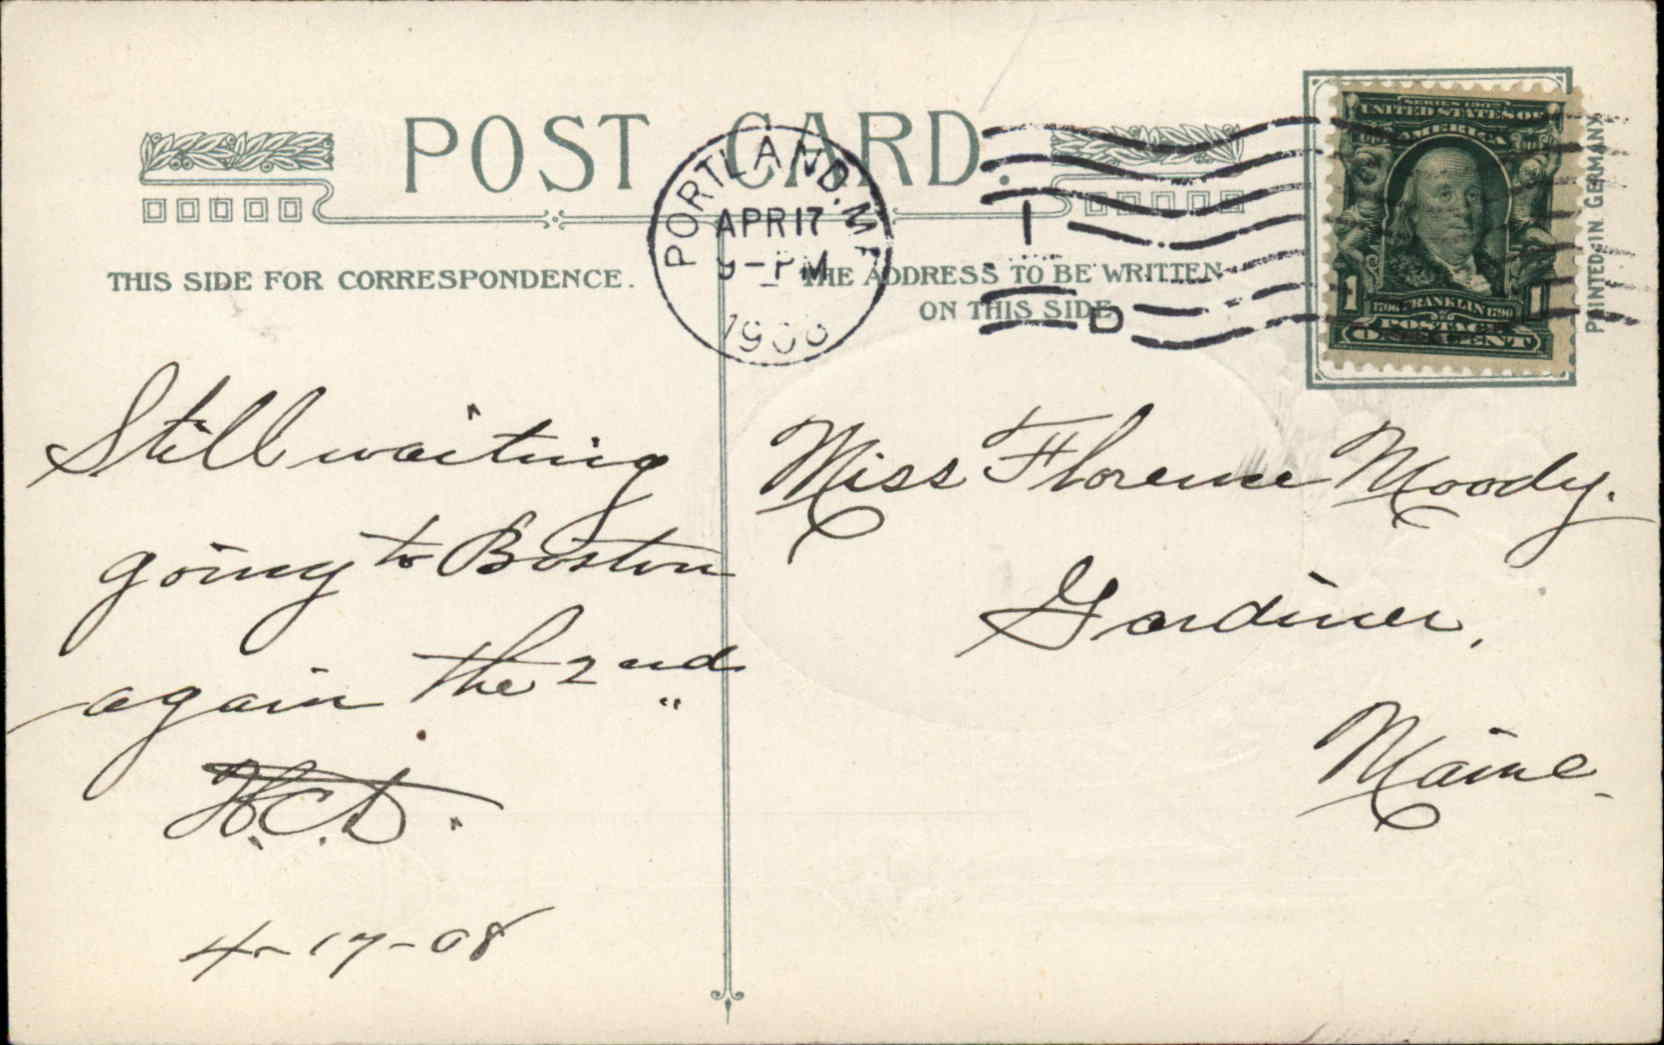 POST CARD.
THIS SIDE FOR CORRESPONDENCE.
THE ADDRESS TO BE WRITTEN
ON THIS SIDE
PORTLAND, ME
APR 17
9-PM
1908
1
D
SERIES 1902
UNITED STATES OF
AMERICA
1 1706 FRANKLIN 1790 1
POSTAGE
ONE CENT
PRINTED IN GERMANY
Still waiting
going to Boston
again the 2nd
H.C.D.
4-17-08
Miss Florence Moody.
Gardiner,
Maine